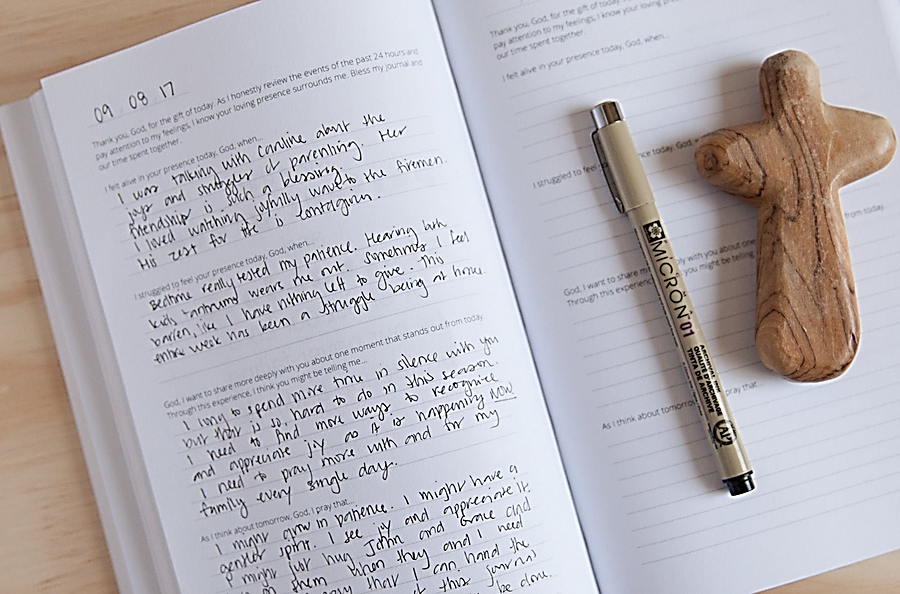 09 08 17
Thank you, God, for the gift of today. As I honestly review the events of the past 24 hours and
pay attention to my feelings, I know your loving presence surrounds me. Bless my journal and
our time spent together.
I felt alive in your presence today, God, when...
I was talking with Caroline about the
joys and struggles of parenting. Her
friendship is such a blessing.
I loved watching wave to the firemen.
His zest for life is contagious.
I struggled to feel your presence today, God, when...
Bedtime really tested my patience. Hearing both
kids tantrum wears me out. Sometimes I feel
barren, like I have nothing left to give. This
entire week has been a struggle being at home.
God, I want to share more deeply with you about one moment that stands out from today.
Through this experience, I think you might be telling me...
I long to spend more time in silence with you
but that is so hard to do in this season.
I need to find more ways to recognize
and appreciate joy as it is happening NOW
I need to pray more with and for my
family every single day.
As I think about tomorrow, God, I pray that...
I might grow in patience. I might have a
gentler spirit. I see joy and appreciate it.
I might just hug John and Grace and
on them when they and I need
pray that I can hand the
of this journal
be done.
Thank you, God, for the gift of today. As I honestly review the events of the past
pay attention to my feelings, I know your loving presence surrounds me.
our time spent together.
I felt alive in your presence today, God, when...
I struggled to feel your
today, God,
God, I want to share m
ply with you about one
from today.
Through this experienc
you might be telling
As I think about tomorrow,
pray that...
MICRON 01
ARCHIVAL INK
QUALITÉ D'ARCHIVAGE
TINTA DE ARCHIVE
AP